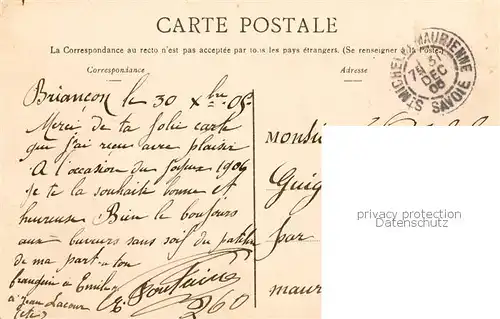 CARTE POSTALE
La Correspondance au recto n'est pas acceptée par tous les pays étrangers. (Se renseigner à la Poste)
Correspondance
Adresse
ST MICHEL MAURIENNE
31
DEC
06
SAVOIE
Briançon le 30 Xbre
Merci de ta Jolie carte
que j'ai reçu avec plaisir
A l'occasion du Joyeux
Je te la souhaite bonne et
heureuse Bien le bonjour
aux buveurs sans soif du
de ma part a ton
frangin a Emile
a Jean Lacour
E. Fontaine
260
Monsie
Guig
par
maur
privacy protection
Datenschutz